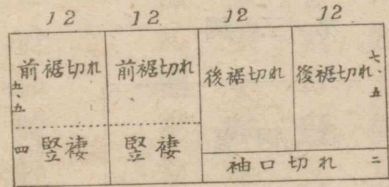 12 12 12 12
前裾切れ 前裾切れ 後裾切れ 後裾切れ
五、五 七、五
四 竪褄 竪褄
袖口切れ 二